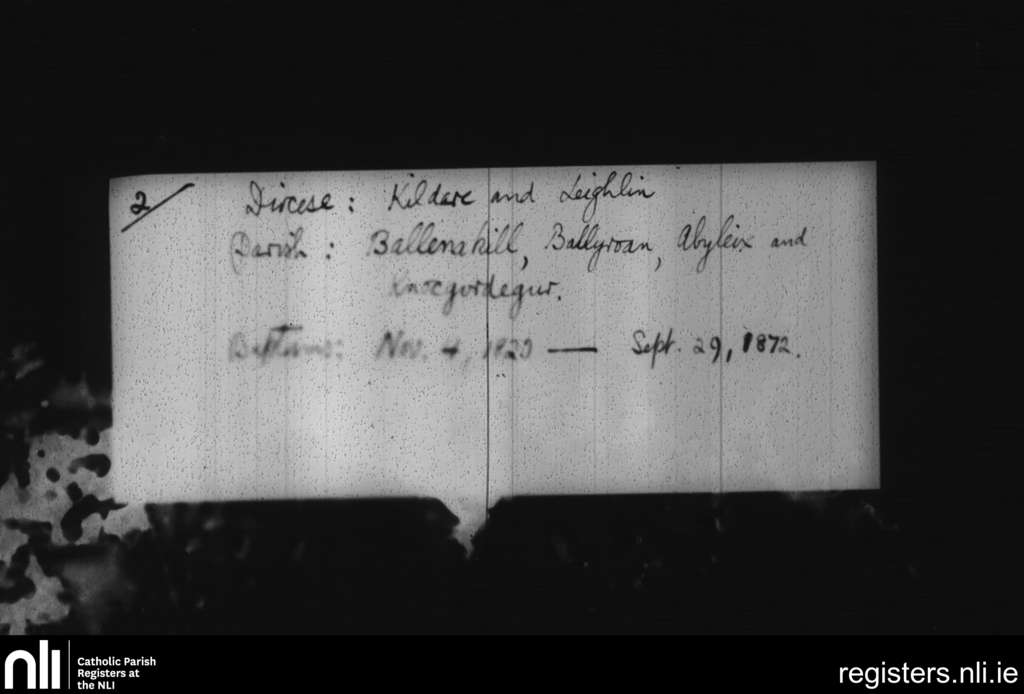 2/
Diocese: Kildare and Leighlin
Parish: Ballenakill, Ballyroan, Abyleix and
Knocgordegur.
Baptisms: Nov. 4, 1820 — Sept. 29, 1872.
nli
Catholic Parish
Registers at
the NLI
registers.nli.ie